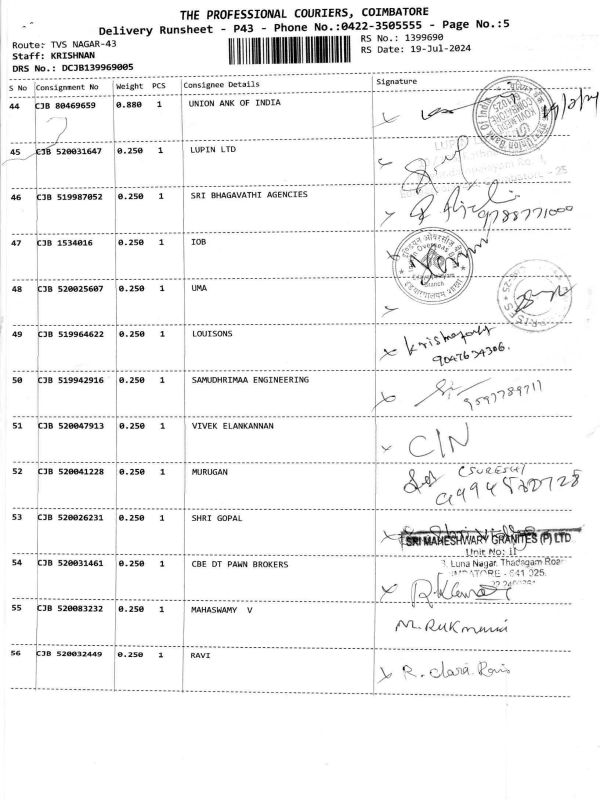 THE PROFESSIONAL COURIERS, COIMBATORE
Delivery Runsheet - P43 - Phone No.:0422-3505555 - Page No.:5
Route: TVS NAGAR-43
Staff: KRISHNAN
DRS No.: DCJB139969005
RS No.: 1399690
RS Date: 19-Jul-2024
S No Consignment No Weight PCS Consignee Details Signature
44 CJB 80469659 0.880 1 UNION ANK OF INDIA
45 CJB 520031647 0.250 1 LUPIN LTD
46 CJB 519987052 0.250 1 SRI BHAGAVATHI AGENCIES
9788771000
47 CJB 1534016 0.250 1 IOB
Branch
48 CJB 520025607 0.250 1 UMA
49 CJB 519964622 0.250 1 LOUISONS
9047634306.
50 CJB 519942916 0.250 1 SAMUDHRIMAA ENGINEERING
9597789711
51 CJB 520047913 0.250 1 VIVEK ELANKANNAN
C/N
52 CJB 520041228 0.250 1 MURUGAN
(SURESH)
53 CJB 520026231 0.250 1 SHRI GOPAL
SRI MAHESHWARY GRANITES (P) LTD
Unit No: II
54 CJB 520031461 0.250 1 CBE DT PAWN BROKERS
3, Luna Nagar, Thadagam Road
641 025.
55 CJB 520083232 0.250 1 MAHASWAMY V
M. Rukmani
56 CJB 520032449 0.250 1 RAVI
R. clara Rani